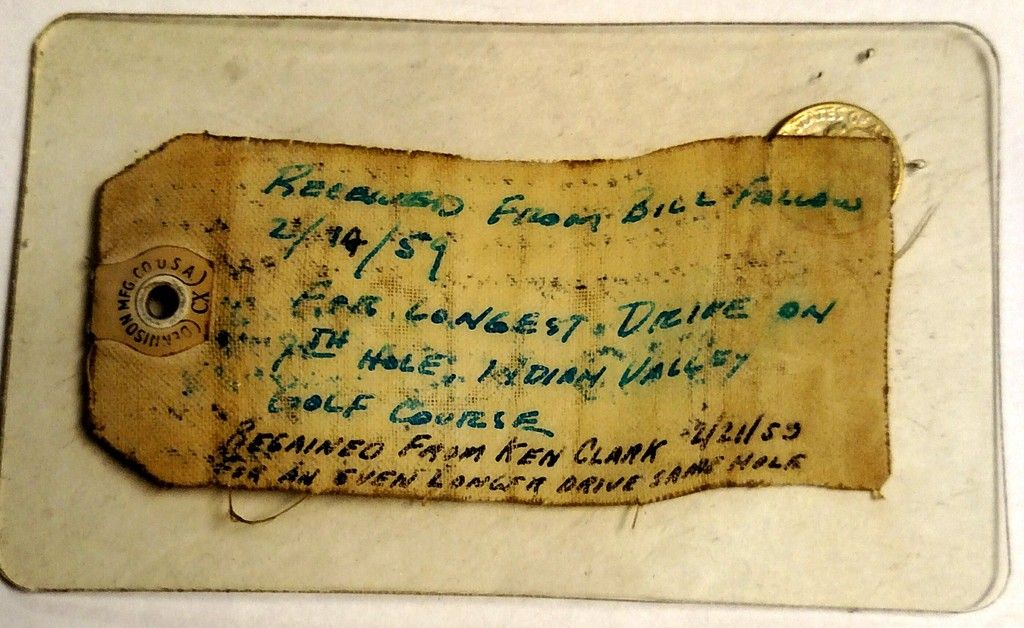 RECEIVED FROM BILL FALLOW
2/14/59
FOR LONGEST DRIVE ON
7TH HOLE, INDIAN VALLEY
GOLF COURSE
REGAINED FROM KEN CLARK 2/21/59
FOR AN EVEN LONGER DRIVE SAME HOLE
DENNISON MFG. CO. U S A